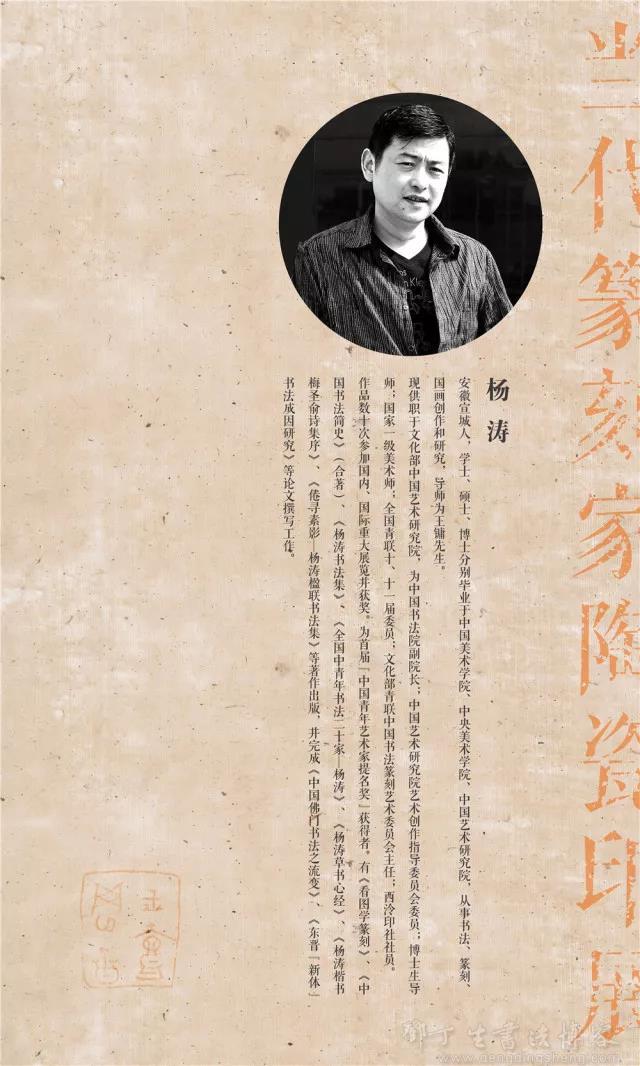 当代篆刻家陶瓷印展
杨涛
安徽宣城人，学士、硕士、博士分别毕业于中国美术学院、中央美术学院、中国艺术研究院，从事书法、篆刻、
国画创作和研究，导师为王镛先生。
现供职于文化部中国艺术研究院，为中国书法院副院长；中国艺术研究院艺术创作指导委员会委员；博士生导
师；国家一级美术师；全国青联十、十一届委员；文化部青联中国书法篆刻艺术委员会主任；西泠印社社员。
作品数十次参加国内、国际重大展览并获奖。为首届「中国青年艺术家提名奖」获得者。有《看图学篆刻》、《中
国书法简史》（合著）、《杨涛书法集》、《全国中青年书法二十家—杨涛》、《杨涛草书心经》、《杨涛楷书
梅圣俞诗集序》、《倦寻素影—杨涛楹联书法集》等著作出版，并完成《中国佛门书法之流变》、《东晋「新体」
书法成因研究》等论文撰写工作。
www.dengdingsheng.com